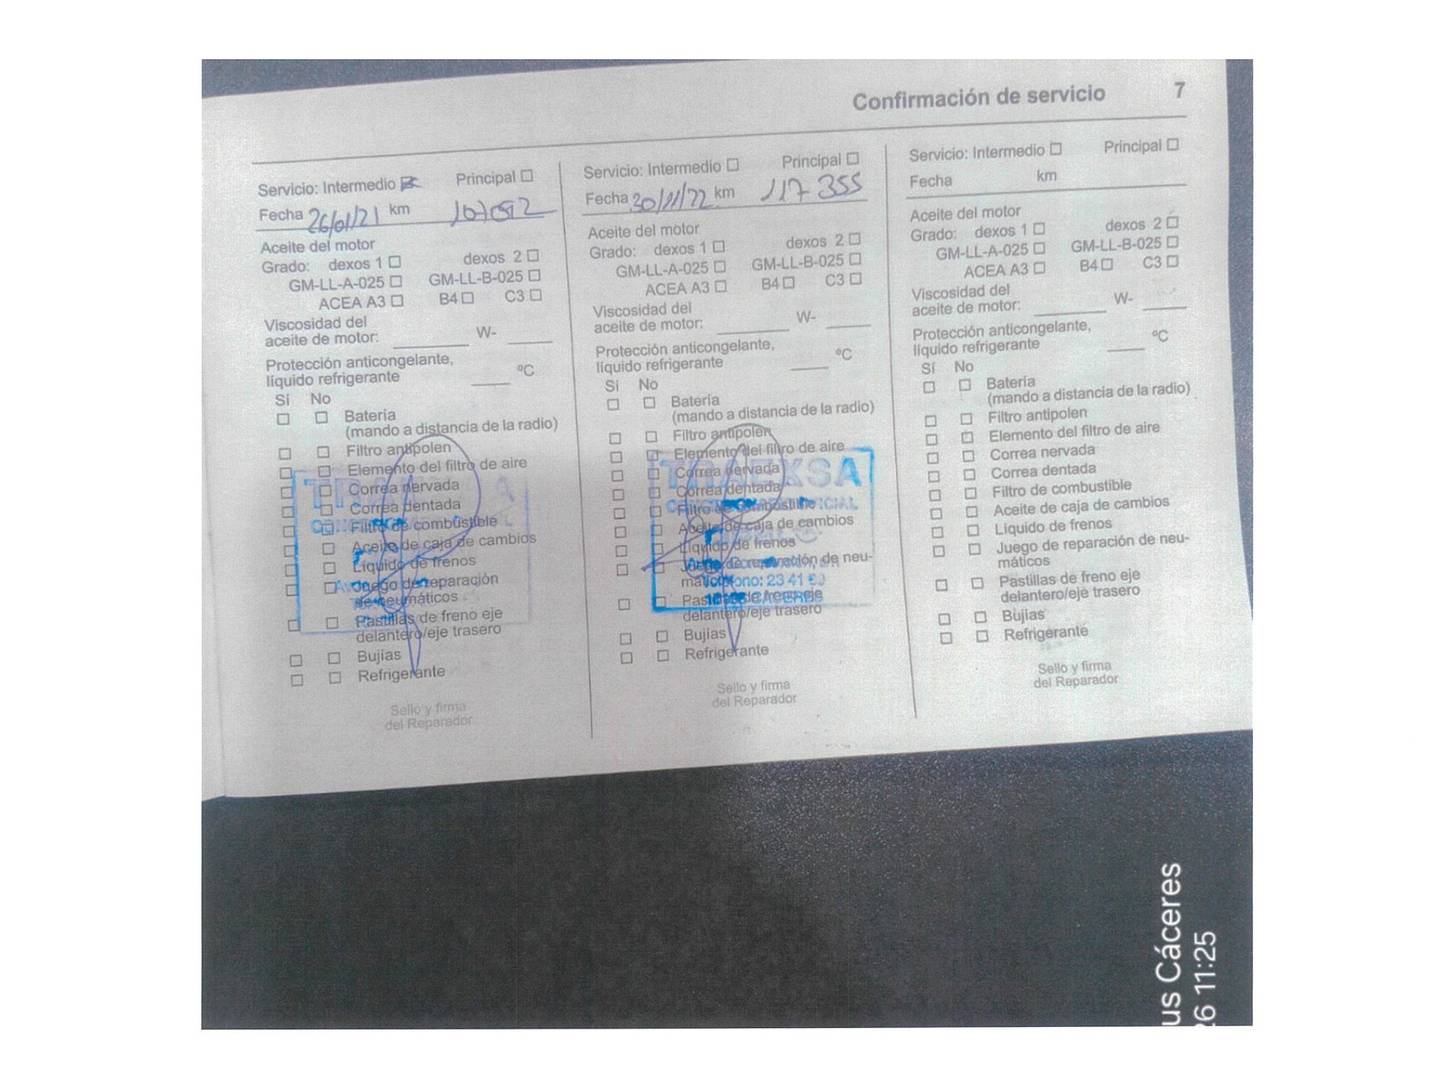 Confirmación de servicio 7
Servicio: Intermedio Principal
Fecha 26/01/21 km 107092
Aceite del motor
Grado: dexos 1 dexos 2
GM-LL-A-025 GM-LL-B-025
ACEA A3 B4 C3
Viscosidad del
aceite de motor: W-
Protección anticongelante,
líquido refrigerante ºC
Sí No
Batería
(mando a distancia de la radio)
Filtro antipolen
Elemento del filtro de aire
Correa nervada
Correa dentada
Filtro de combustible
Aceite de caja de cambios
Líquido de frenos
Juego de reparación
de neumáticos
Pastillas de freno eje
delantero/eje trasero
Bujías
Refrigerante
Sello y firma
del Reparador
Servicio: Intermedio Principal
Fecha 30/11/22 km 117355
Aceite del motor
Grado: dexos 1 dexos 2
GM-LL-A-025 GM-LL-B-025
ACEA A3 B4 C3
Viscosidad del
aceite de motor: W-
Protección anticongelante,
líquido refrigerante ºC
Sí No
Batería
(mando a distancia de la radio)
Filtro antipolen
Elemento del filtro de aire
Correa nervada
Correa dentada
Filtro de combustible
Aceite de caja de cambios
Líquido de frenos
Juego de reparación de neu-
máticos
Pastillas de freno eje
delantero/eje trasero
Bujías
Refrigerante
TRAEXSA
Sello y firma
del Reparador
Servicio: Intermedio Principal
Fecha km
Aceite del motor
Grado: dexos 1 dexos 2
GM-LL-A-025 GM-LL-B-025
ACEA A3 B4 C3
Viscosidad del
aceite de motor: W-
Protección anticongelante,
líquido refrigerante ºC
Sí No
Batería
(mando a distancia de la radio)
Filtro antipolen
Elemento del filtro de aire
Correa nervada
Correa dentada
Filtro de combustible
Aceite de caja de cambios
Líquido de frenos
Juego de reparación de neu-
máticos
Pastillas de freno eje
delantero/eje trasero
Bujías
Refrigerante
Sello y firma
del Reparador
us Cáceres
26 11:25